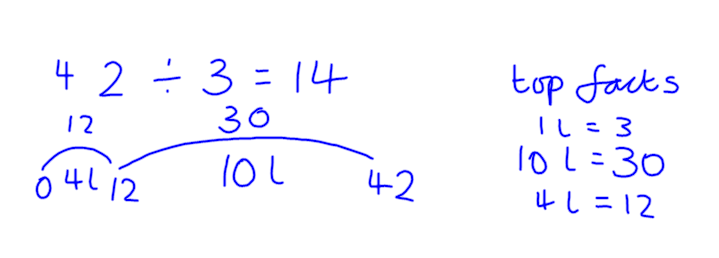 42 ÷ 3 = 14
12 30
0 4l 12 10 l 42
top facts
1 l = 3
10 l = 30
4 l = 12